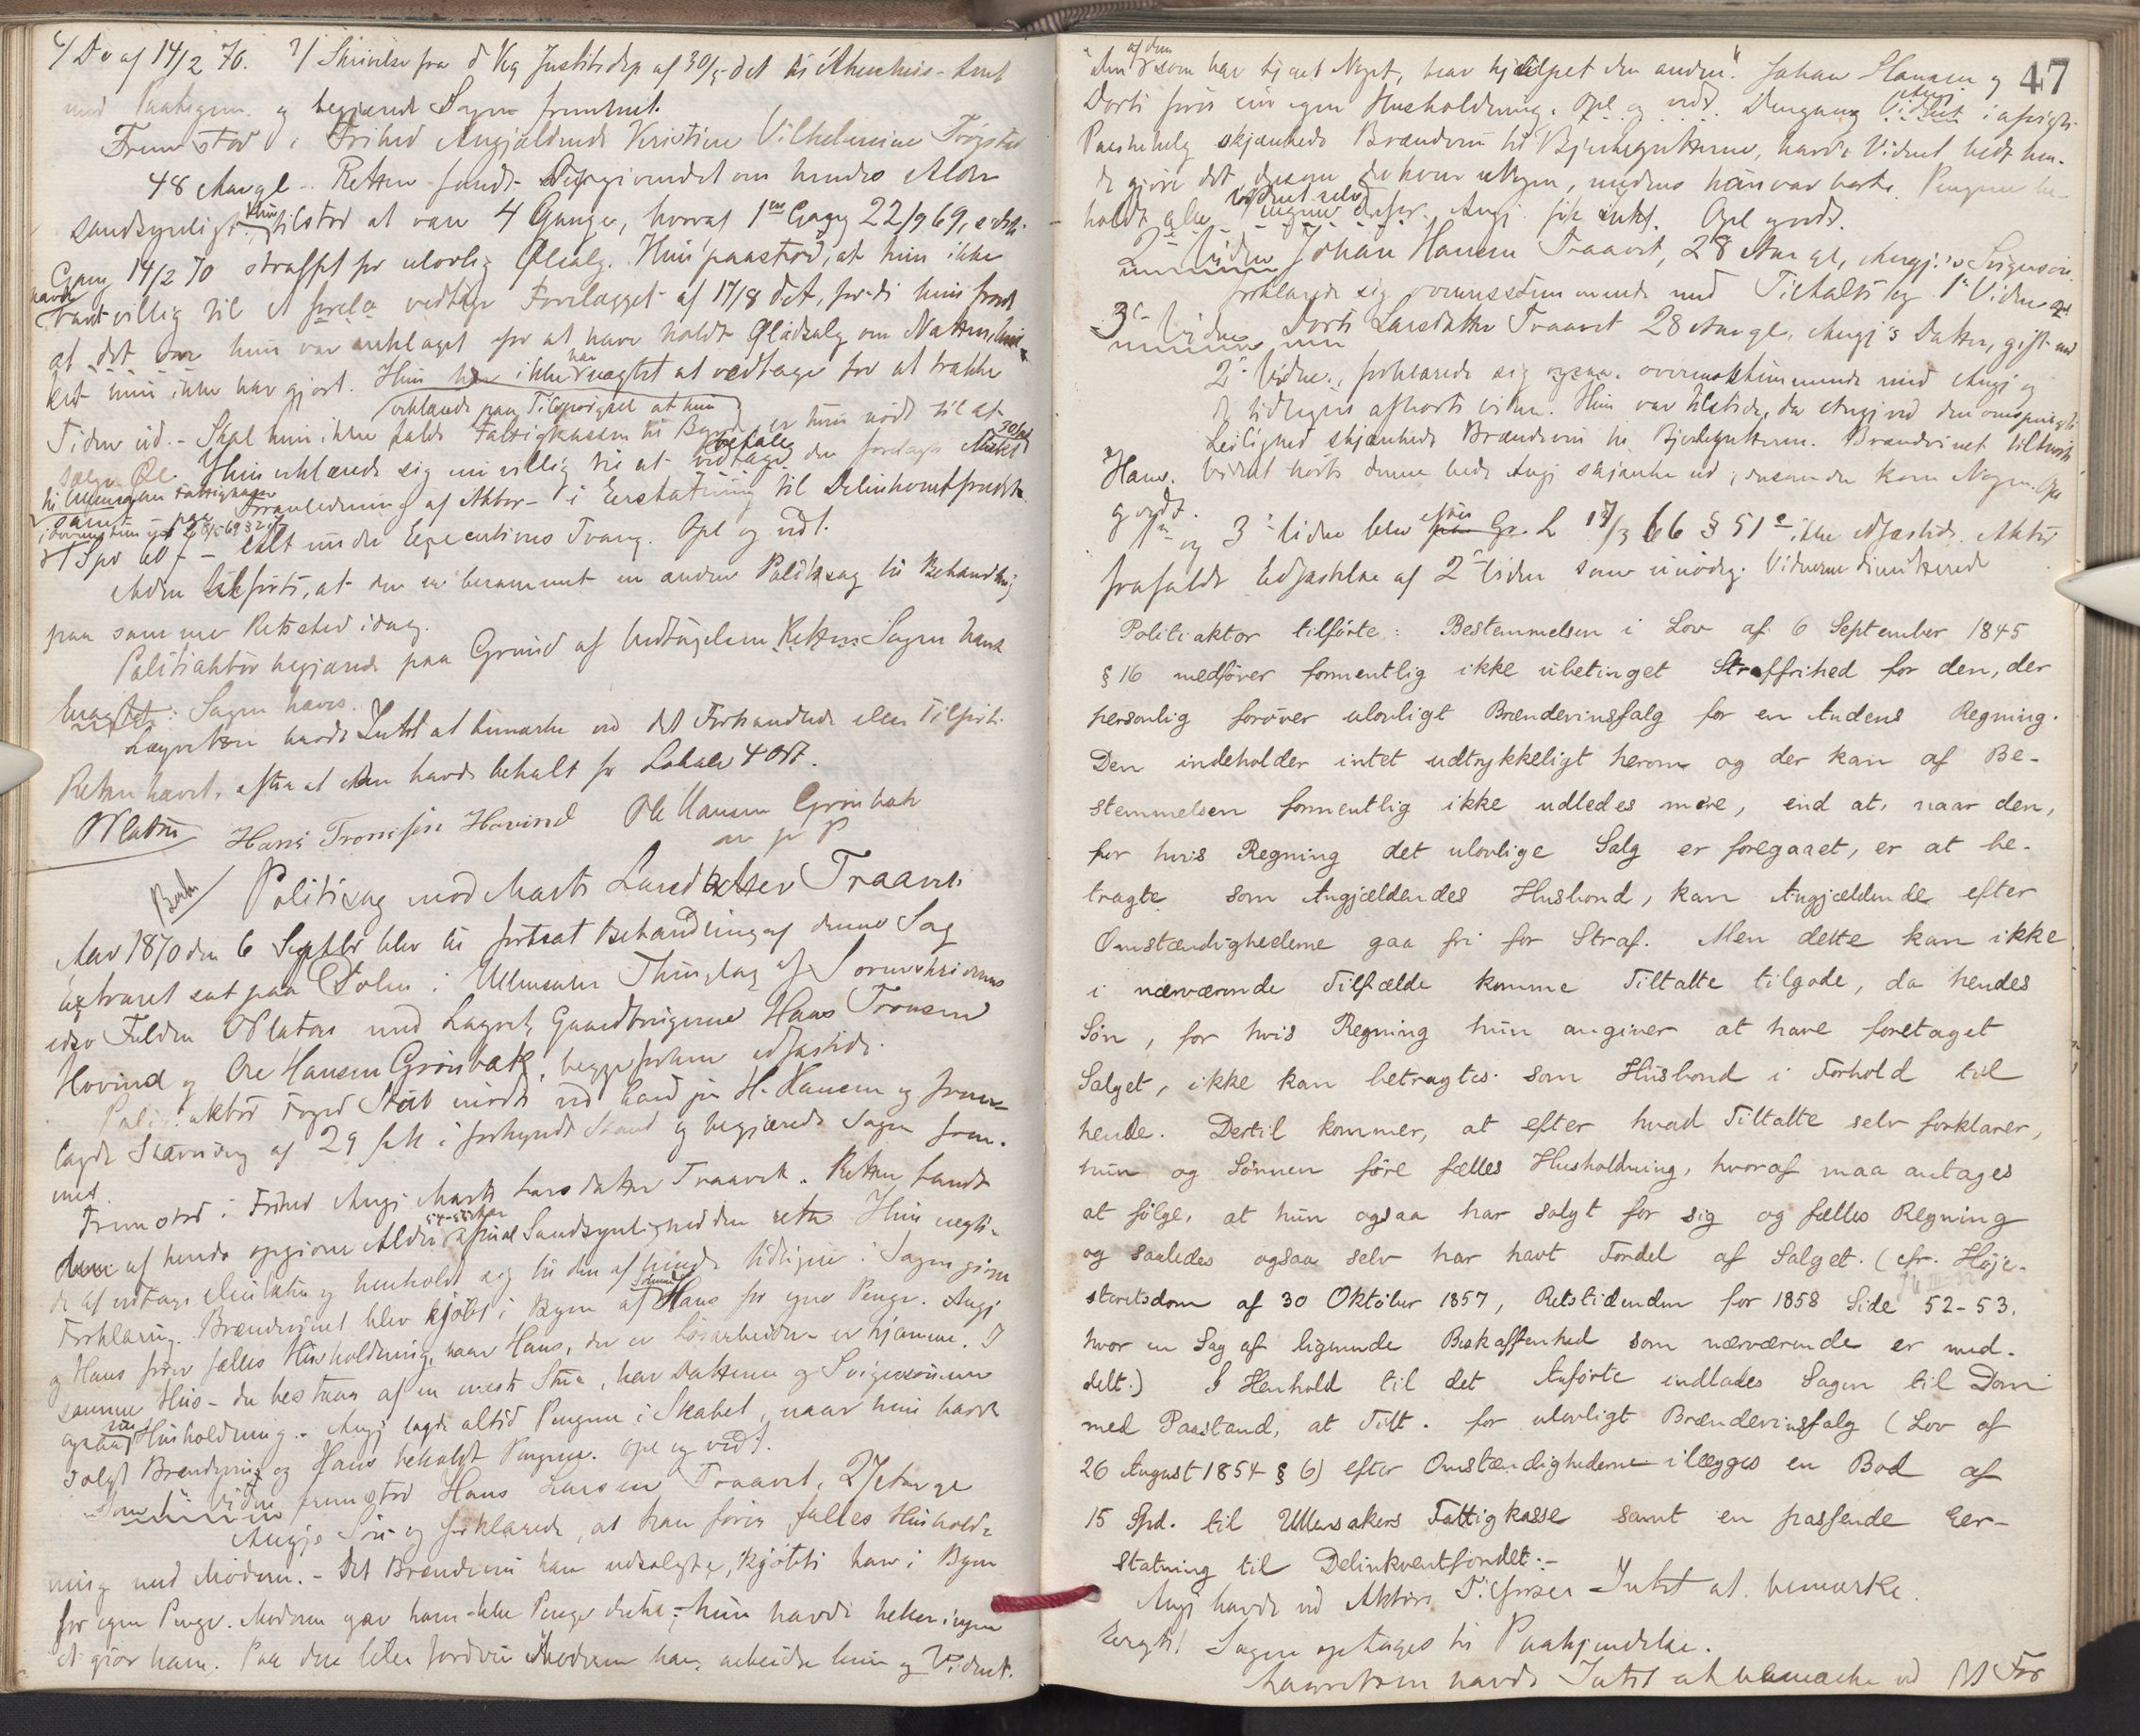 c/ Do af 14/2 70. Skrivelse fra d Kg Justitsdep af 30/5 det til Akershus Amt
med Paategn. og begjærede Sagen fremmet.
Fremstod i Frihed Angjældende Kristine Vilhelmine Trøgstad
48 Aar gl. Retten fandt Opgivendet om hendes Alder
sandsynligt. Hun tilstod at være 4 Gange, hvoraf 1ste Gang 22/9 69, sidste
Gang 14/2 70 straffet for ulovlig Ølsalg. Hun paastod, at hun ikke
havde været villig til at vedtage Forelægget af 17/8 det, fordi hun troede
at det var hun var anklaget for at have holdt Øludsalg om Natten, hvil-
ket hun ikke har gjort. Hun har ikke nægtet at vedtage for at trække
Tiden ud. - Skal hun ikke falde Fattigkassen til Byrde er hun nødt til at
erklærede paa Tilspørgsel at hun
sælge Øl. Hun erklærede sig nu villig til at betale den forelagte Mulkt
til Ullensakers Fattigkasse
samt paa Foranledning af Aktor i Erstatning til Delinkventfondet
1 Spd alt under Executions Tvang. Opl og vedt.
Akten tilførte, at der er berammet en anden Politisag til Behandling
paa samme Retssted idag.
Politiaktor begjærede paa Grund af Vedtagelsen Sagen hævet
Eragtet: Sagen hæves.
Lagretten havde Intet at bemærke ved det Forhandlede eller Tilførte.
Retten hævet, efterat den havde betalt for Lokale 4 Ort.
OPlatou Hans Tronsen Hovind Ole Hansen Grønbak
m p P
Politisag mod Marte Larsdatter Traaret
Aar 1870 den 6 Septbr blev til fortsat Behandling af denne Sag
Extraret sat paa Dolen i Ullensaker Thinglag af Sorenskriverens
edsv Fuldm OPlatou med Lagret, Gaardbrugerne Hans Tronsen
Hovind og Ole Hansen Grønbak, begge forhen edfæstede.
Politiaktor Foged mødte ved H. Hansen og frem-
lagde Stævning af 29 f M i forkyndt Stand og begjærede Sagen frem-
met.
Fremstod i Frihed Angj Marte Larsdatter Traaret. Retten fandt
den af hende opgivne Alder 54-55 Aar af Sandsynlighed den rette. Hun negte-
de at vedtage Mulkten og henholdt sig til den af hende tidligere i Sagen givne
Forklaring. Brændevinet blev kjøbt i Byen af Sønnen Hans for egne Penge. Angj
og Hans fører fælles Husholdning, naar Hans, der er Løsarbeider er hjemme. I
samme Hus - der bestaar af en eneste Stue, har Datteren og Svigersønnen
ogsaa sin Husholdning. - Angj lagde altid Pengene i Skabet, naar hun havde
solgt Brændevin, og Hans beholdt Pengene. Opl og vedt.
Som 1ste Vidne fremstod Hans Larsen Traaret, 27 Aar gl
Angjs Søn og forklarede, at han fører fælles Hushold-
ning med Moderen. - Det Brændevin han udsolgte, kjøbte han i Byen
for egne Penge. Moderen gav ham ikke Penge dertil; hun havde heller ingen
at give ham. Paa den lille Jordvei Moderen har, arbeider hun og Vidnet.
47
"Den af dem som har tjent Noget, har hjulpet den anden". Johan Hansen og
Dorte fører sin egen Husholdning. Opl og vedt. Dengang Angj Vidnet i afvigte
Paaskehelg skjænkede Brændevin til Bjerkegutterne, havde Vidnet bedt hen-
de gjøre det, dersom der kom Nogen, medens han var borte. Pengene be-
holdt Vidnet selv. Angj fik intet. Opl og vedt.
2det Vidne Johan Hansen Traaret, 28 Aar gl, Angj.'s Svigersøn
forklarede sig overensstemmende med Tiltalte og 1ste Vidne.
3die Vidne Dorte Larsdatter Traaret 28 Aar gl, Angj's Datter, gift med
2det Vidne, forklarede sig ogsaa overensstemmende med Angj og
de tidligere afhørte Vidner. Hun var tilstede, da Angj ved den omspurgte
Leilighed skjænkede Brændevin til Bjerkegutterne. Brændevinet tilhørte
Hans. Vidnet hørte denne bede Angj skjænke ud, dersom der kom Nogen. Opl
og vedt.
1ste og 3die Vidne blev efter Gr. L 17/3 66 § 51 ikke edfæstede. Aktor
frafaldt Edfæstelse af 2det Vidne som unødig. Vidnerne dimitterede
Politiaktor tilførte: Bestemmelsen i Lov af 6 September 1845
§ 16 medfører formentlig ikke ubetinget Straffrihed for den, der
personlig forøver ulovligt Brændevinssalg for en Andens Regning.
Den indeholder intet udtrykkeligt herom og der kan af Be-
stemmelsen formentlig ikke udledes mere, end at, naar den,
for hvis Regning det ulovlige Salg er foregaaet, er at be-
tragte som Angjældendes Husbond, kan Angjældende efter
Omstændighederne gaa fri for Straf. Men dette kan ikke
i nærværende Tilfælde komme Tiltalte tilgode, da hendes
Søn, for hvis Regning hun angiver at have foretaget
Salget, ikke kan betragtes som Husbond i Forhold til
hende. Dertil kommer, at efter hvad Tiltalte selv forklarer,
hun og Sønnen føre fælles Husholdning, hvoraf maa antages
at følge, at hun ogsaa har solgt for sig og fælles Regning
og saaledes ogsaa selv har havt Fordel af Salget. (cfr. Høje-
steretsdom af 30 Oktober 1857, Retstidenden for 1858 Side 52-53.
hvor en Sag af lignende Beskaffenhed som nærværende er med-
delt.) I Henhold til det Anførte indlades Sagen til Dom
med Paastand, at Tilt. for ulovligt Brændevinssalg (Lov af
26 August 1854 § 6) efter Omstændighederne ilægges en Bod af
15 Spd. til Ullensakers Fattigkasse samt en passende Er-
statning til Delinkventfondet.-
Angj havde ved Aktors Tilførsel Intet at bemærke.
Eragtet Sagen optages til Paakjendelse.
Lagretten havde Intet at bemærke ved det For